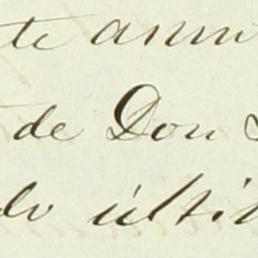 te anun
de Don
do últi